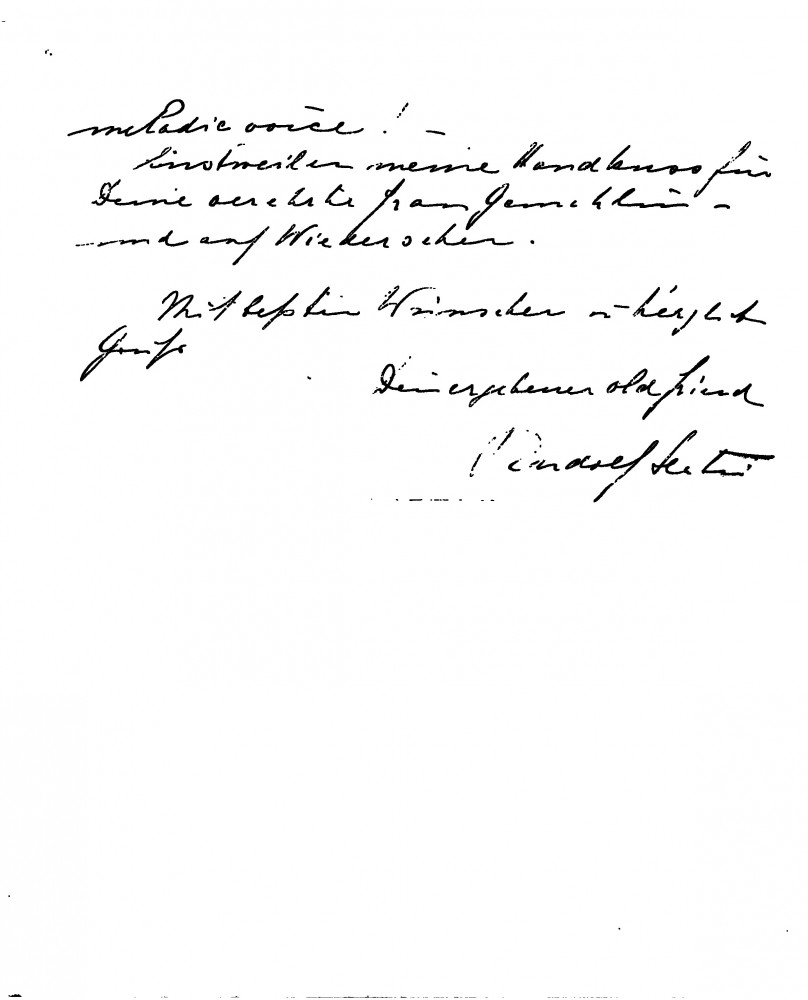 melodic voice! –
Einstweilen meine Handkuss für
Deine verehrte Frau Gemahlin –
und auf Wiedersehen.
Mit besten Wünschen u herzlich
Grüße
Dein ergebener old friend
Rudolf